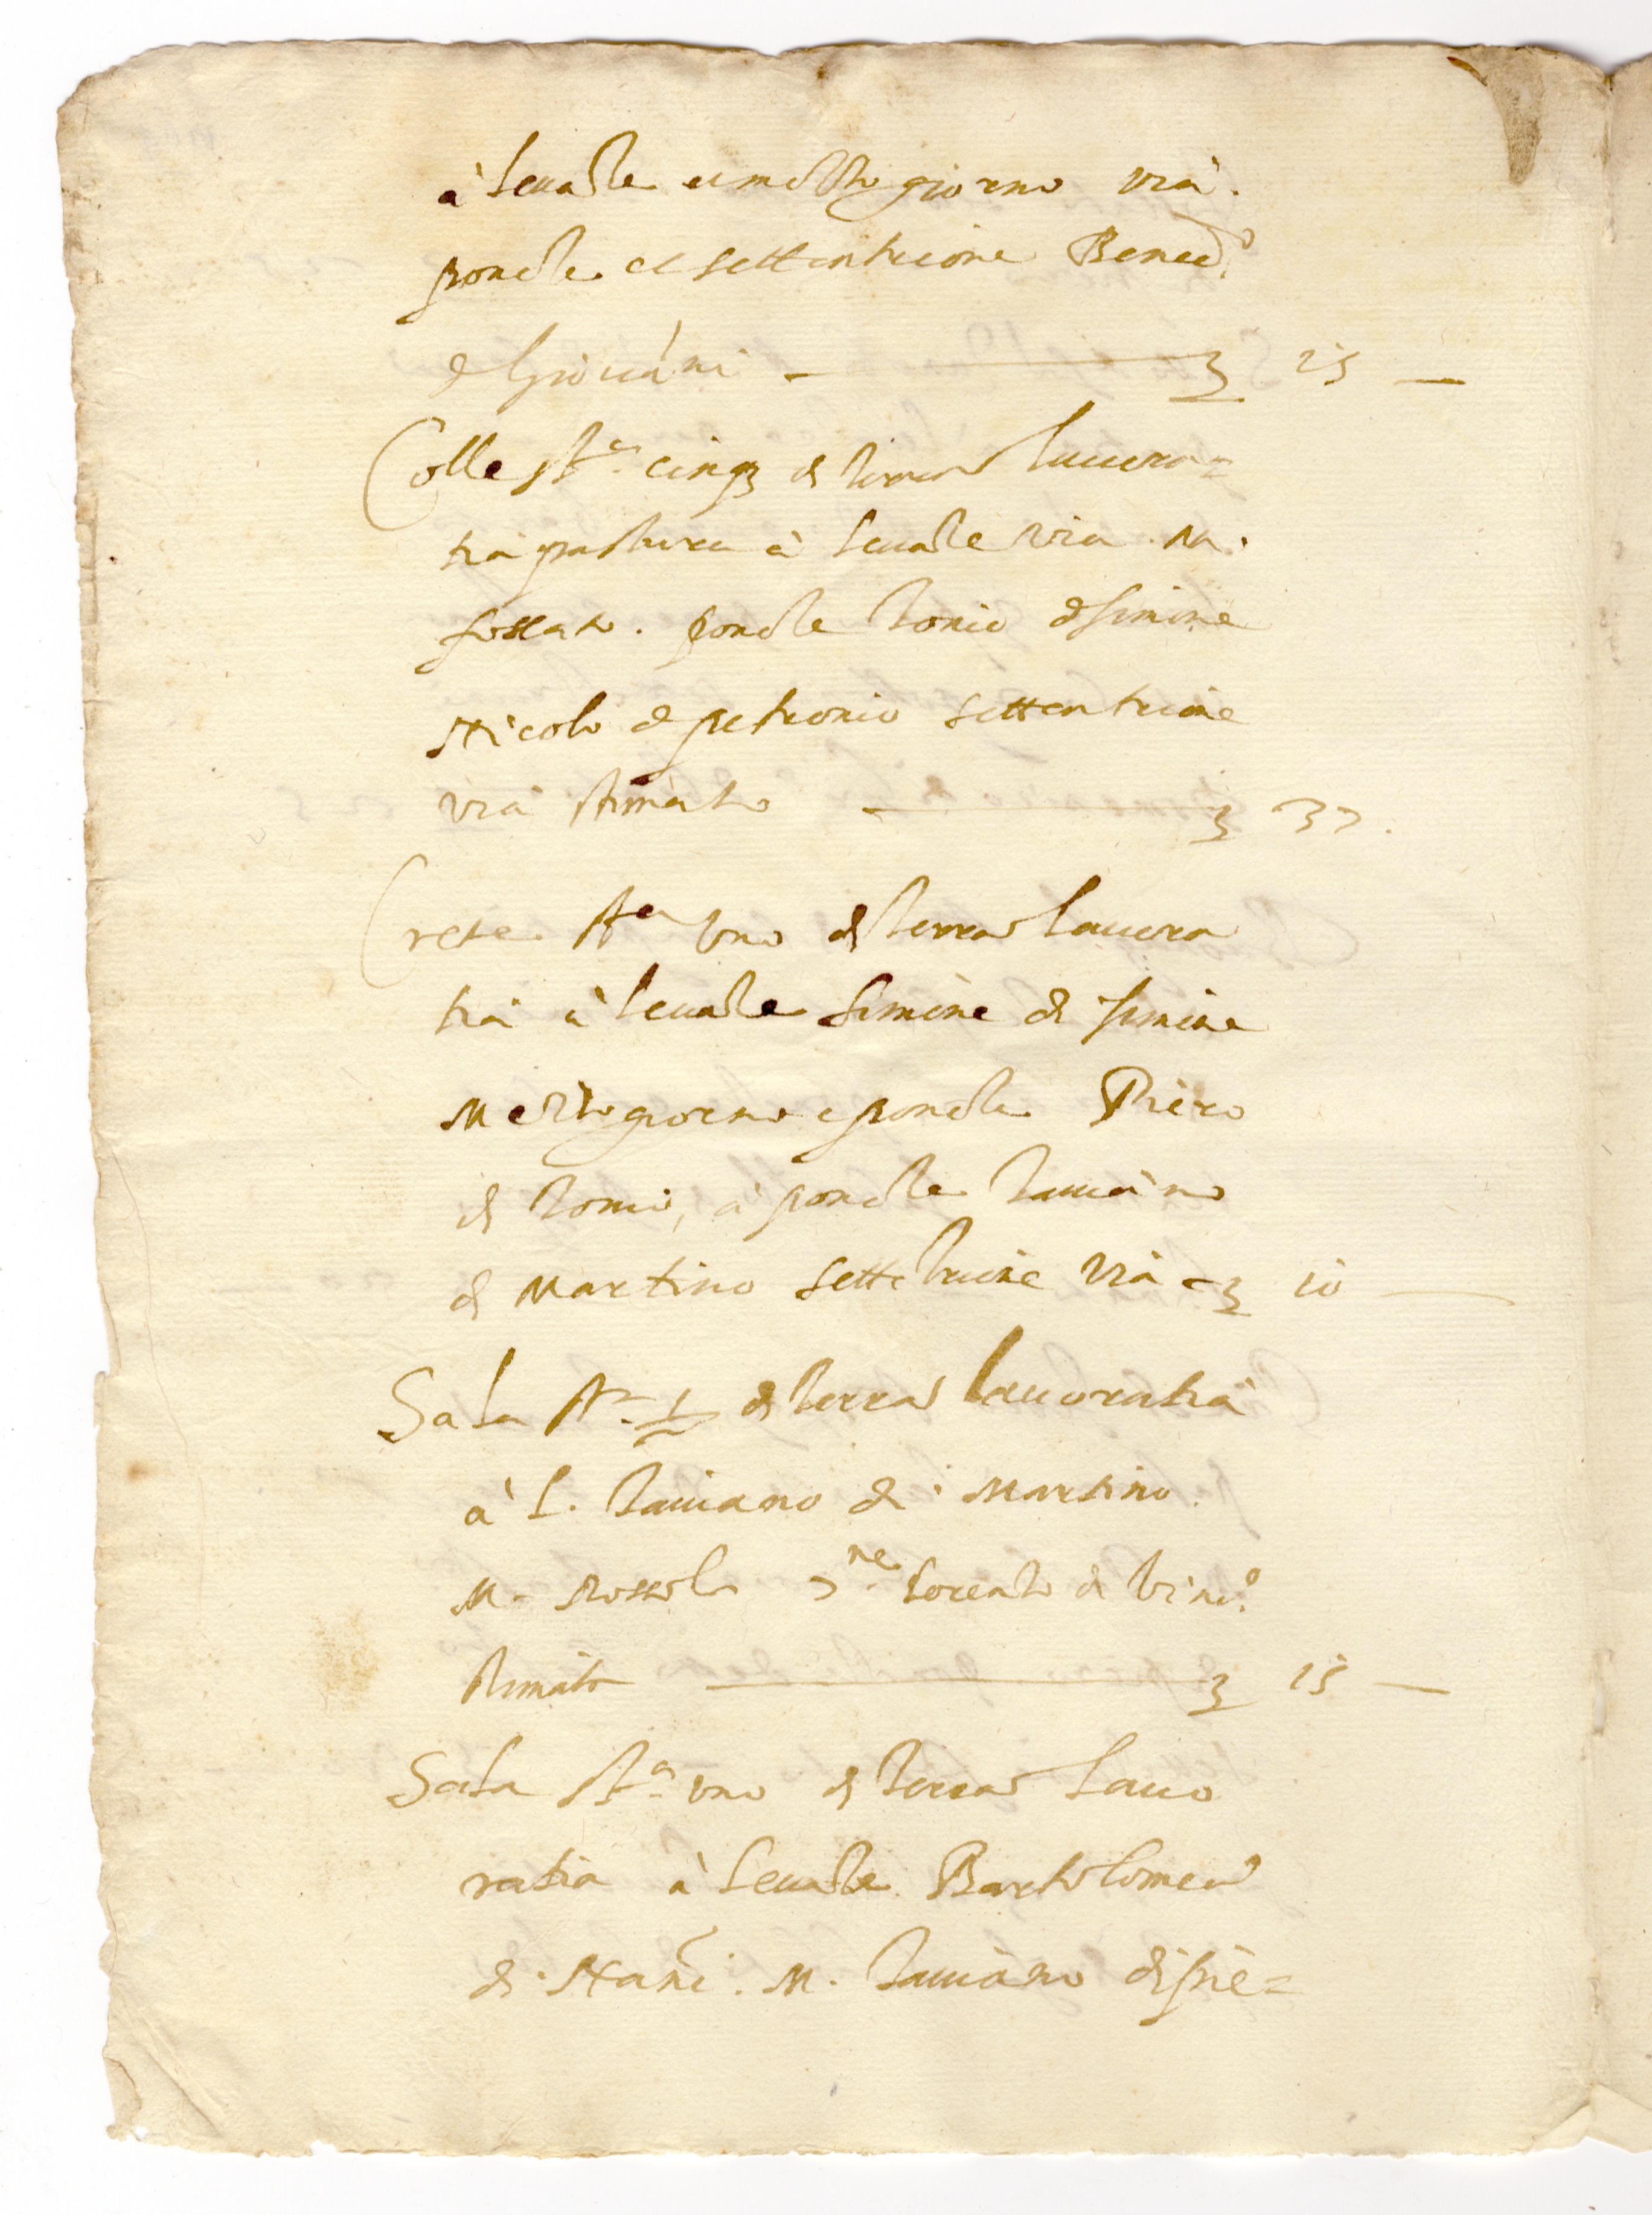 à leuante et mezzo giorno via.
ponete et settentrione Bened.o
di Giouāni — 15 —
Colle st.a cinq3 di terra lauora=
tiа pastura à leuante via. M.
fossato. ponete Tonio di Simine
Nicolo di petronio settentrione
via stimato — 37.
Crete st.a uno di terra lauora
tia à leuante Simine di Simine
Mezzogiorno e ponete Piero
di Tonio, à ponete Tauiano
di Martino settetrione via — 10 —
Sala st.a 1/2 di terra lauoratia
à L. Tauiano di Martino.
M. fossato 7.ne Lorenzo di Vinc.o
stimato — 15 —
Sala st.a uno di terra lauo
ratia à leuante Bartolomeo
di Nāni. M. Tauiano di pie=